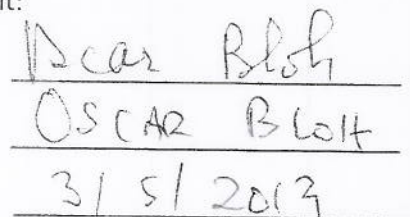 t:
Oscar Bloh
OSCAR BLOH
3/5/2013